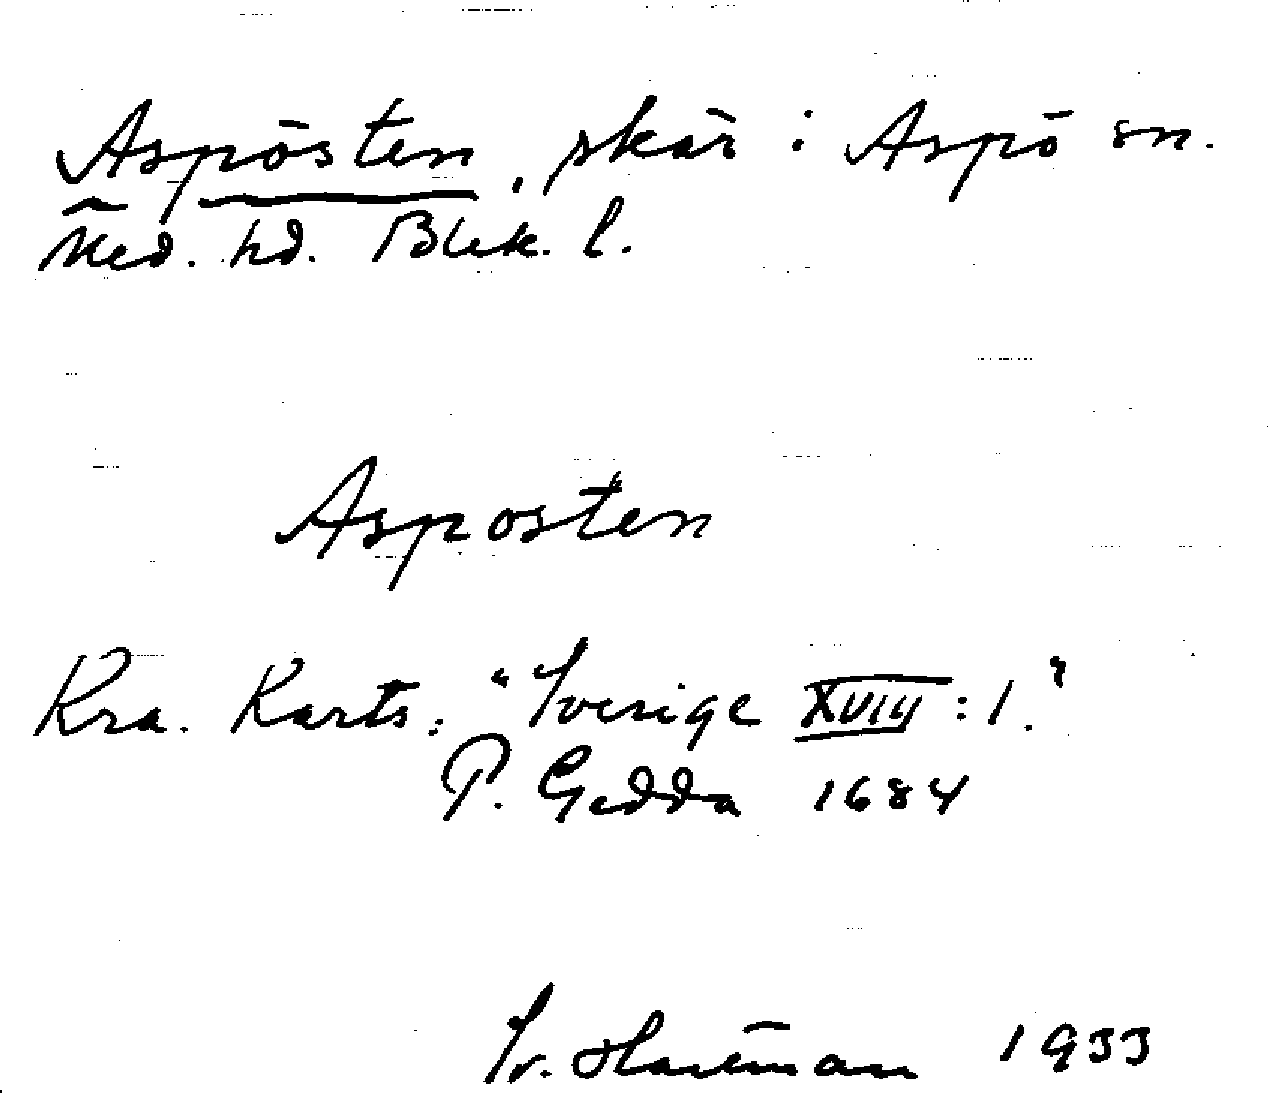 Aspösten, skär i Aspö sn.
Med. hd. Blek. l.
Asposten
Kra. Karts. "Sverige XVIII:1."
P. Gedda 1684
Sv. Hartman 1933